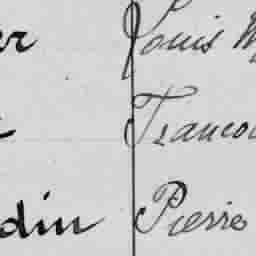 er Louis
Francoi
din Pierre